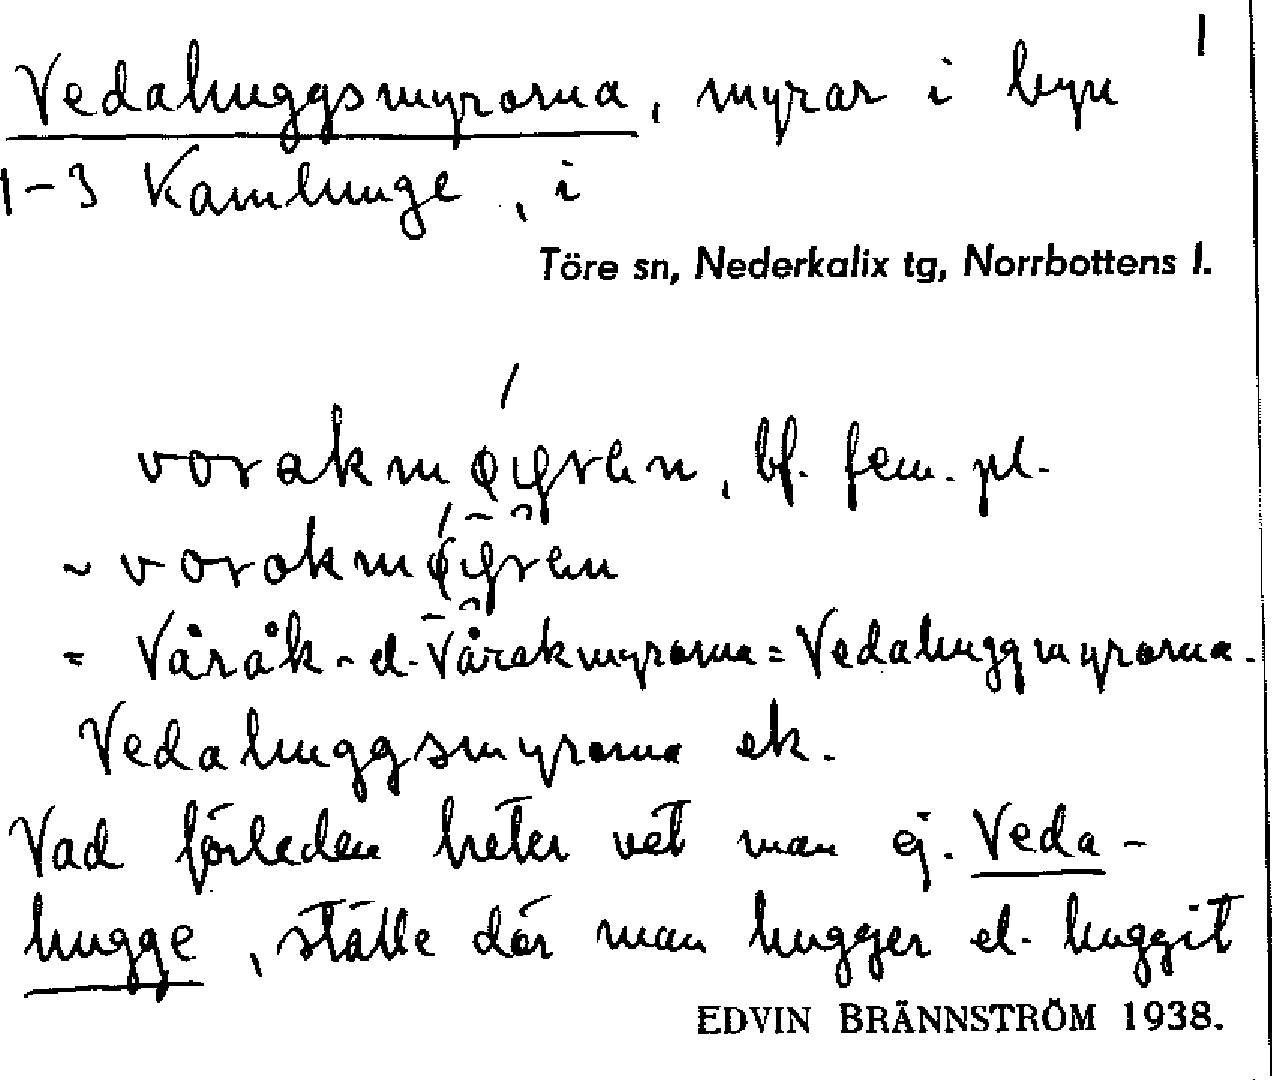 1
Vedahuggsmyrorna, myrar i byn
1-3 Kamlunge, i
Töre sn, Nederkalix tg, Norrbottens l.
bf. fem. pl.
= Våråk- el. Vårakmyrorna = Vedahuggmyrorna.
Vedahuggsmyrorna ek.
Vad förleden heter vet man ej. Veda-
hugge, ställe där man hugger el. huggit
EDVIN BRÄNNSTRÖM 1938.